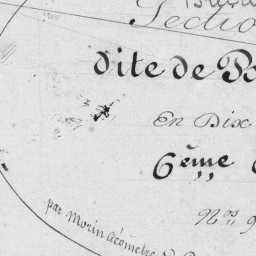 Sectio
dite de Po
En Dix
6ème
Nos 9
par Morin Géomètre